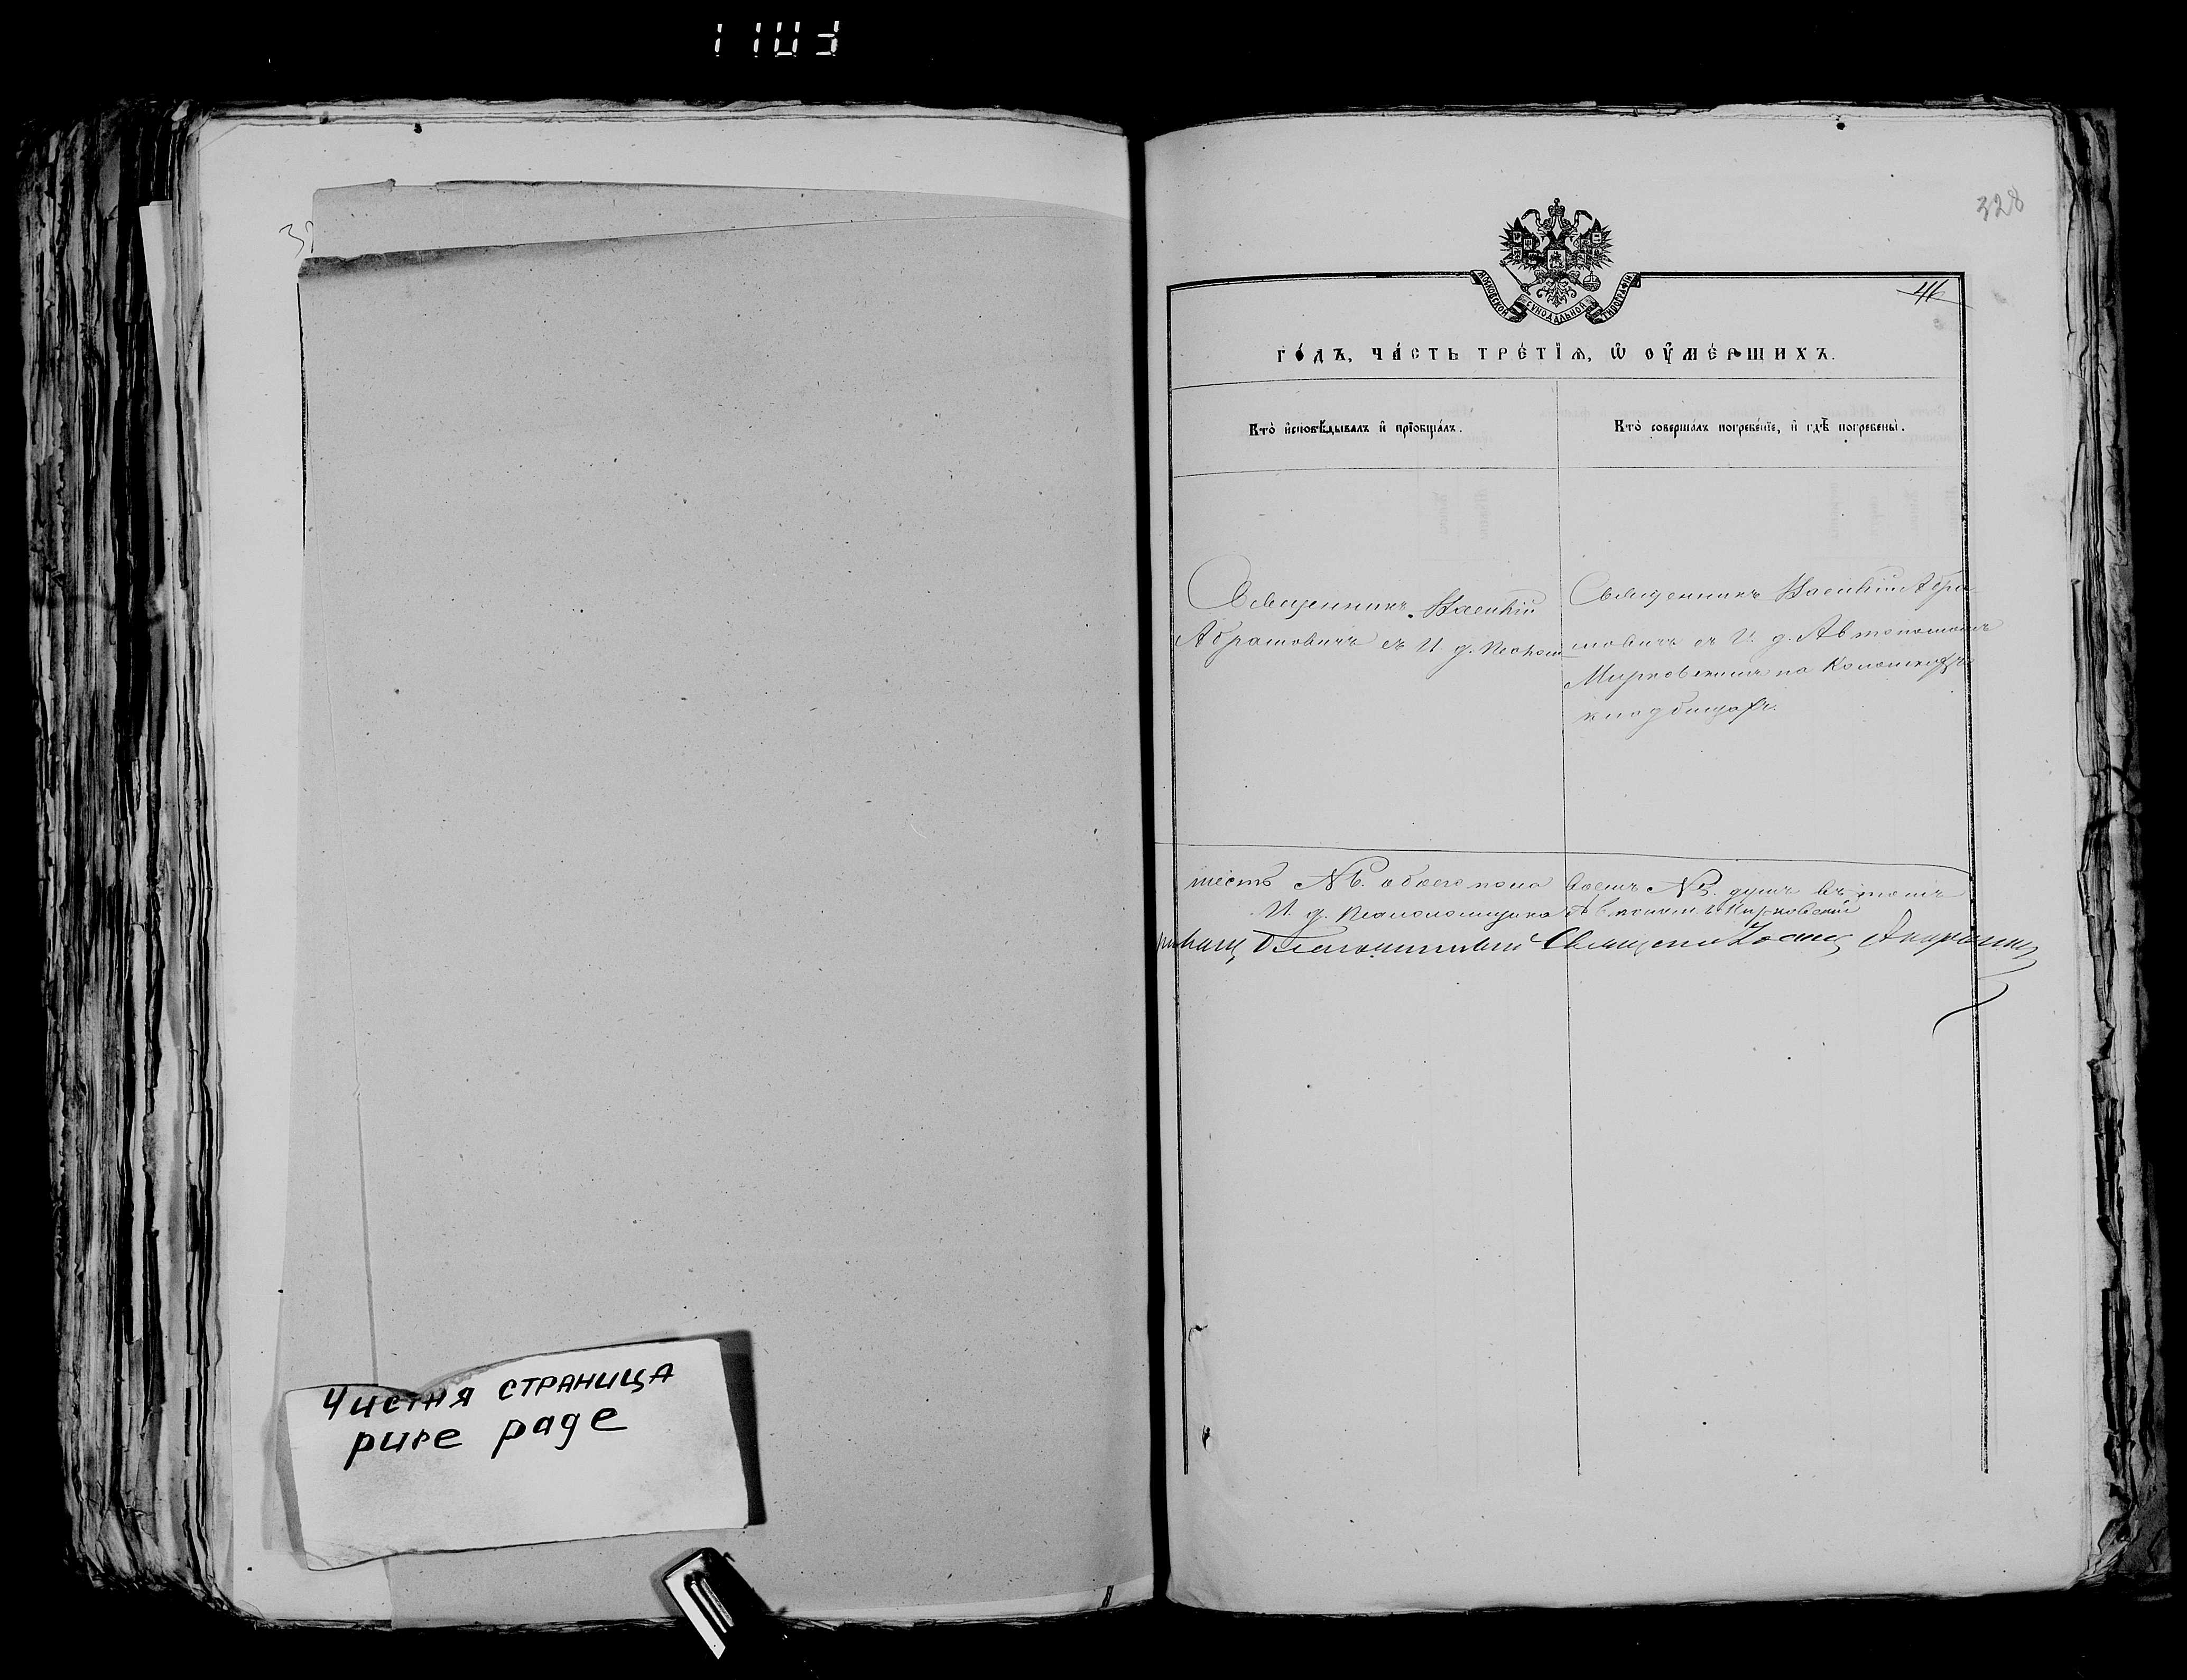 1103
328
46
МОСКОВСКОЙ СѴНОДАЛЬНОЙ ТИПОГРАФІИ
го́дъ, ча́сть тре́тїѧ, ѡ҆ оу҆ме́ршихъ.
Кто̀ и҆сповѣ́дывалъ и҆ прїѡбща́лъ.
Кто̀ соверша́лъ погребе́нїе, и҆ гдѣ̀ погребены̀.
Священникъ Василій
Абрамовичъ съ И. д. Псалом
Священникъ Василій Абра
мовичъ съ И. д. Автономомъ
Мирковскимъ на
кладбищѣ.
шесть №6. обоего пола восемь №8. душъ
И. д. Псаломщика Автономъ Мирковскій
Благочинный Священникъ
Чистая страница
pure page